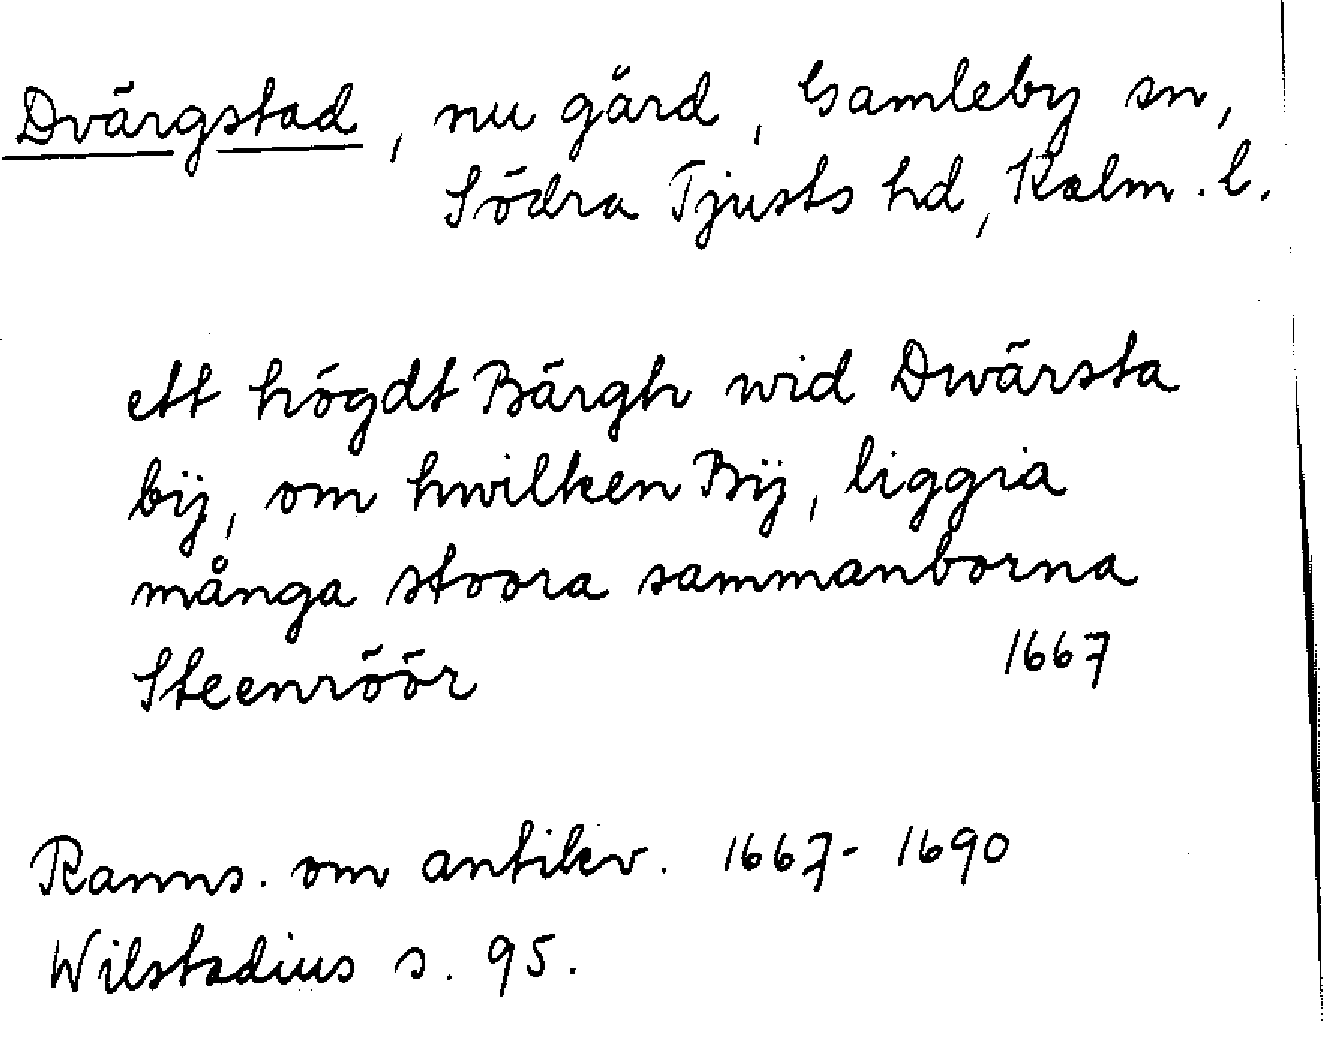 Dvärgstad, nu gård, Gamleby sn,
Södra Tjusts hd, Kalm. l.
ett högdt Bärgh wid Dwärsta
bÿ, om hwilken Bÿ, liggia
många stoora sammanborna
Steenröör 1667
Ranns. om antikv. 1667-1690
Wilstadius s. 95.